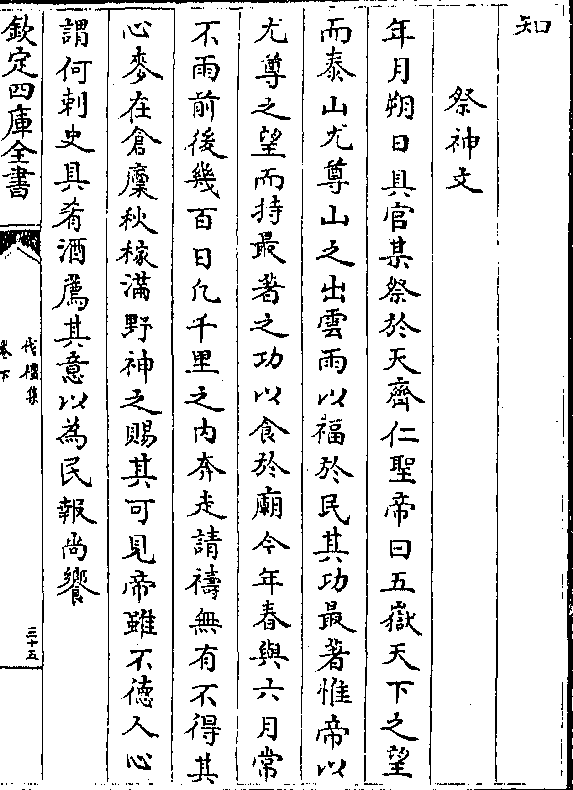 知
祭神文
年月朔日具官某祭於天齊仁聖帝曰五嶽天下之望
而泰山尤尊山之出雲雨以福於民其功最著惟帝以
尤尊之望而持最著之功以食於廟今年春與六月常
不雨前後幾百日凡千里之内奔走請禱無有不得其
心麥在倉廩秋稼滿野神之賜其可見帝雖不德人心
謂何刺史具肴酒薦其意以為民報尚饗
欽定四庫全書
伐檀集
卷下
三十五